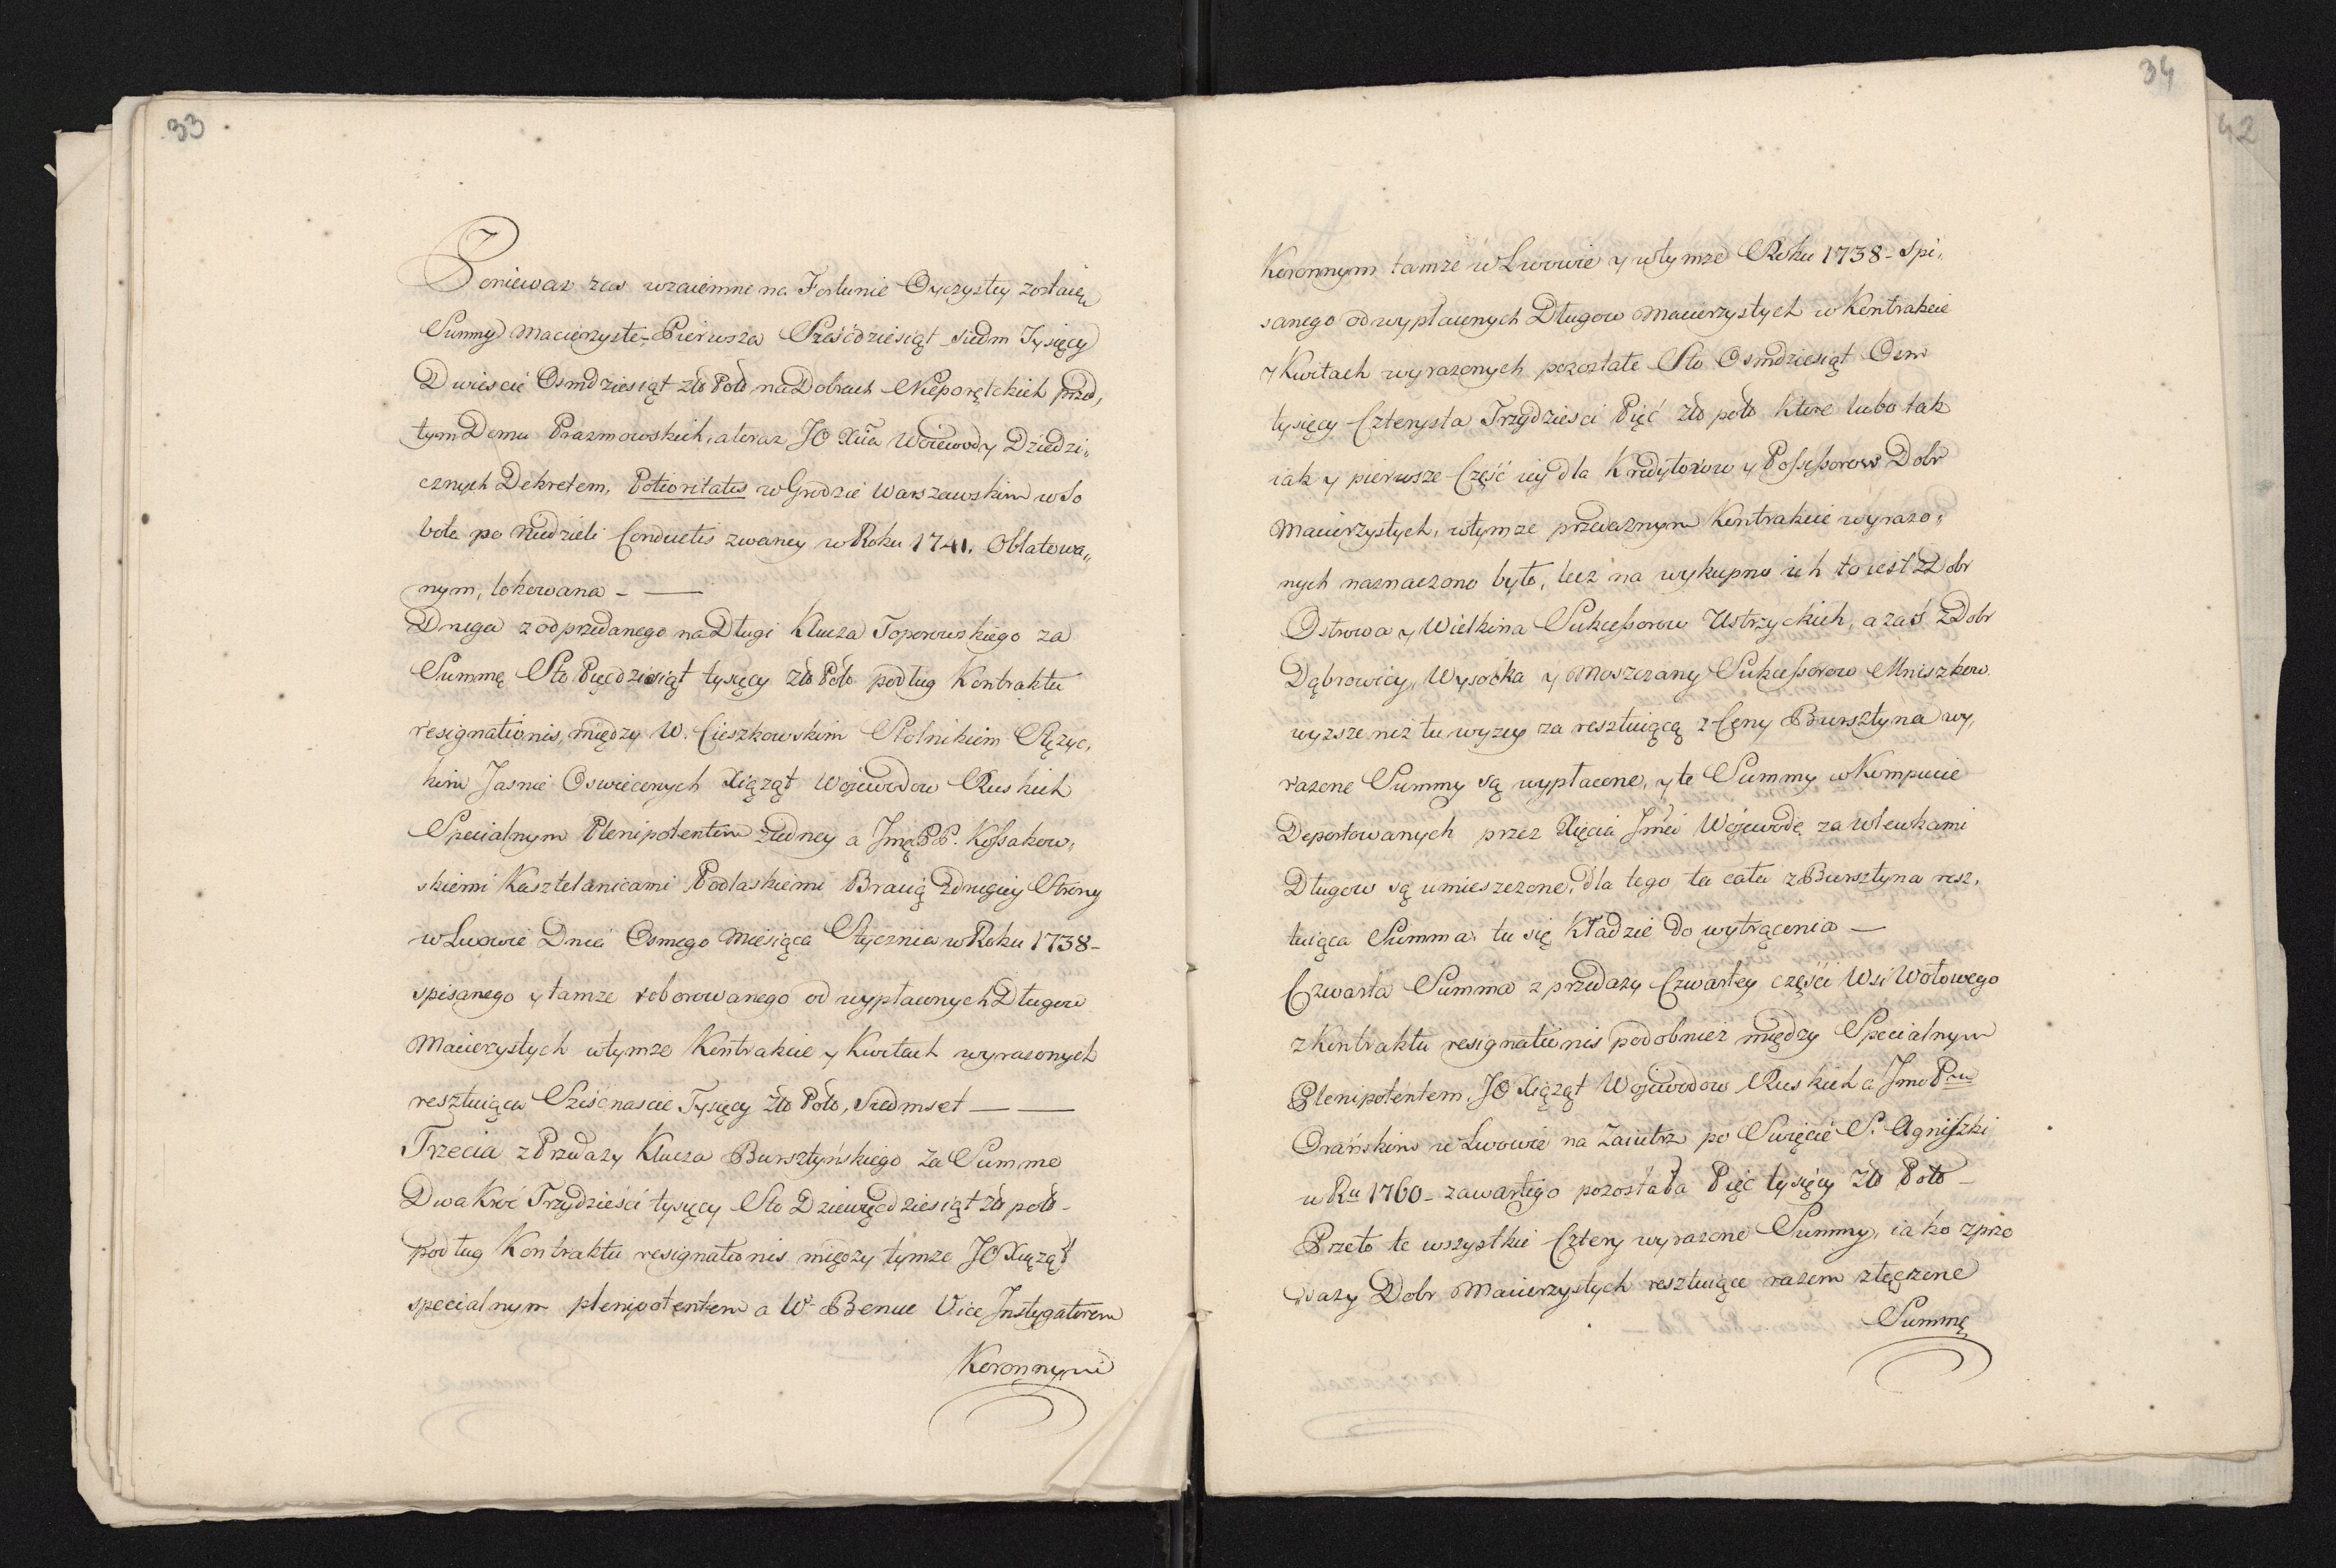 33
Poniewaz zas wzaiemne na Fortunie Oyczystey zostaią
Summy Macierzyste, Pierwsza Sześćdziesiąt siedm Tysięcy
Dwieście Osmdziesiąt zło Polo na Dobrach Nieporętckich przed,
tym Domu Prazmowskich, a teraz JO Xcia Woiewody Dziedzi„
cznych Dekretem, Potioritatis w Grodzie Warszawskim w So
bote po Niedzieli Conductis zwaney w Roku 1741. Oblatowa„
nym, lokowana – —
Druga z odprzedanego na Długi Klucza Toporowskiego za
Summę Sto Pięcdziesiąt tysięcy Zło Polo podług Kontraktu
resignationis, między W. Cieszkowskim Stolnikiem Stężyc,
kim Jasnie Oswieconych Xiążąt Woiewodow Ruskich
Specialnym Plenipotentem z iedney a Jmę PP. Kossakow„
skiemi Kasztelanicami Podlaskiemi Bracią z drugiey Strony
w Lwowie Dnia Osmego Miesiąca Stycznia w Roku 1738–
spisanego y tamze roborowanego od wypłaconych Długow
Macierzystych w tymze Kontrakcie y Kwitach wyrazonych
resztuiąca Sześćnascie Tysięcy Zło Polo, Siedmset — —
Trzecia z Przedazy Klucza Bursztyńskiego za Summe
Dwa Kroć Trzydzieści tysięcy Sto Dziewięcdziesiąt zło polo –
podług Kontraktu resignationis między tymze JO Xiążąt
specialnym plenipotentem a W. Benue Vice Instygatorem
Koronnym
34
42
Koronnym tamze w Lwowie y w tymze Roku 1738 – Spi„
sanego od wypłaconych Długow Macierzystych w Kontrakcie
y Kwitach wyrazonych pozostałe Sto Osmdziesiąt Osm
tysięcy Czterysta Trzydzieści Pięć zło polo które lubo tak
iak y pierwsze Część iey dla Kredytorow y Possessorow Dobr
Macierzystych, w tymze przedaznym Kontrakcie wyrazo„
nych naznaczono było, lecz na wykupno ich to iest z Dobr
Ostrowa y Wielkina Sukcessorow Ustrzyckich, a zaś z Dobr
Dąbrowicy, Wysocka y Moszczany Sukcessorow Mniszkow
wyzsze niż tu wyzey za resztuiącą z Ceny Bursztyna wy„
razone Summy są wypłacone, y te Summy w Kompucie
Deportowanych przez Xięcia Jmci Wojewodę za wlewkami
Długow są umieszczone, dla tego ta cała z Bursztyna resz„
tuiąca Summa, tu się Kładzie do wytrącenia —
Czwarta Summa z przedazy Czwartey części Wsi Wołowego
z Kontraktu resignationis podobnież między Specialnym
Plenipotentem, JO Xiążąt Wojewodow Ruskich a Jmo Pnu
Orańskim w Lwowie na Zaiutrz po Święcie S. Agniszki
w Ru 1760 – zawartego pozostała Pięć tysięcy Zło Polo –
Przeto te wszystkie Cztery wyrazone Summy, iako z prze
dazy Dobr Macierzystych resztuiące razem złączone
Summę